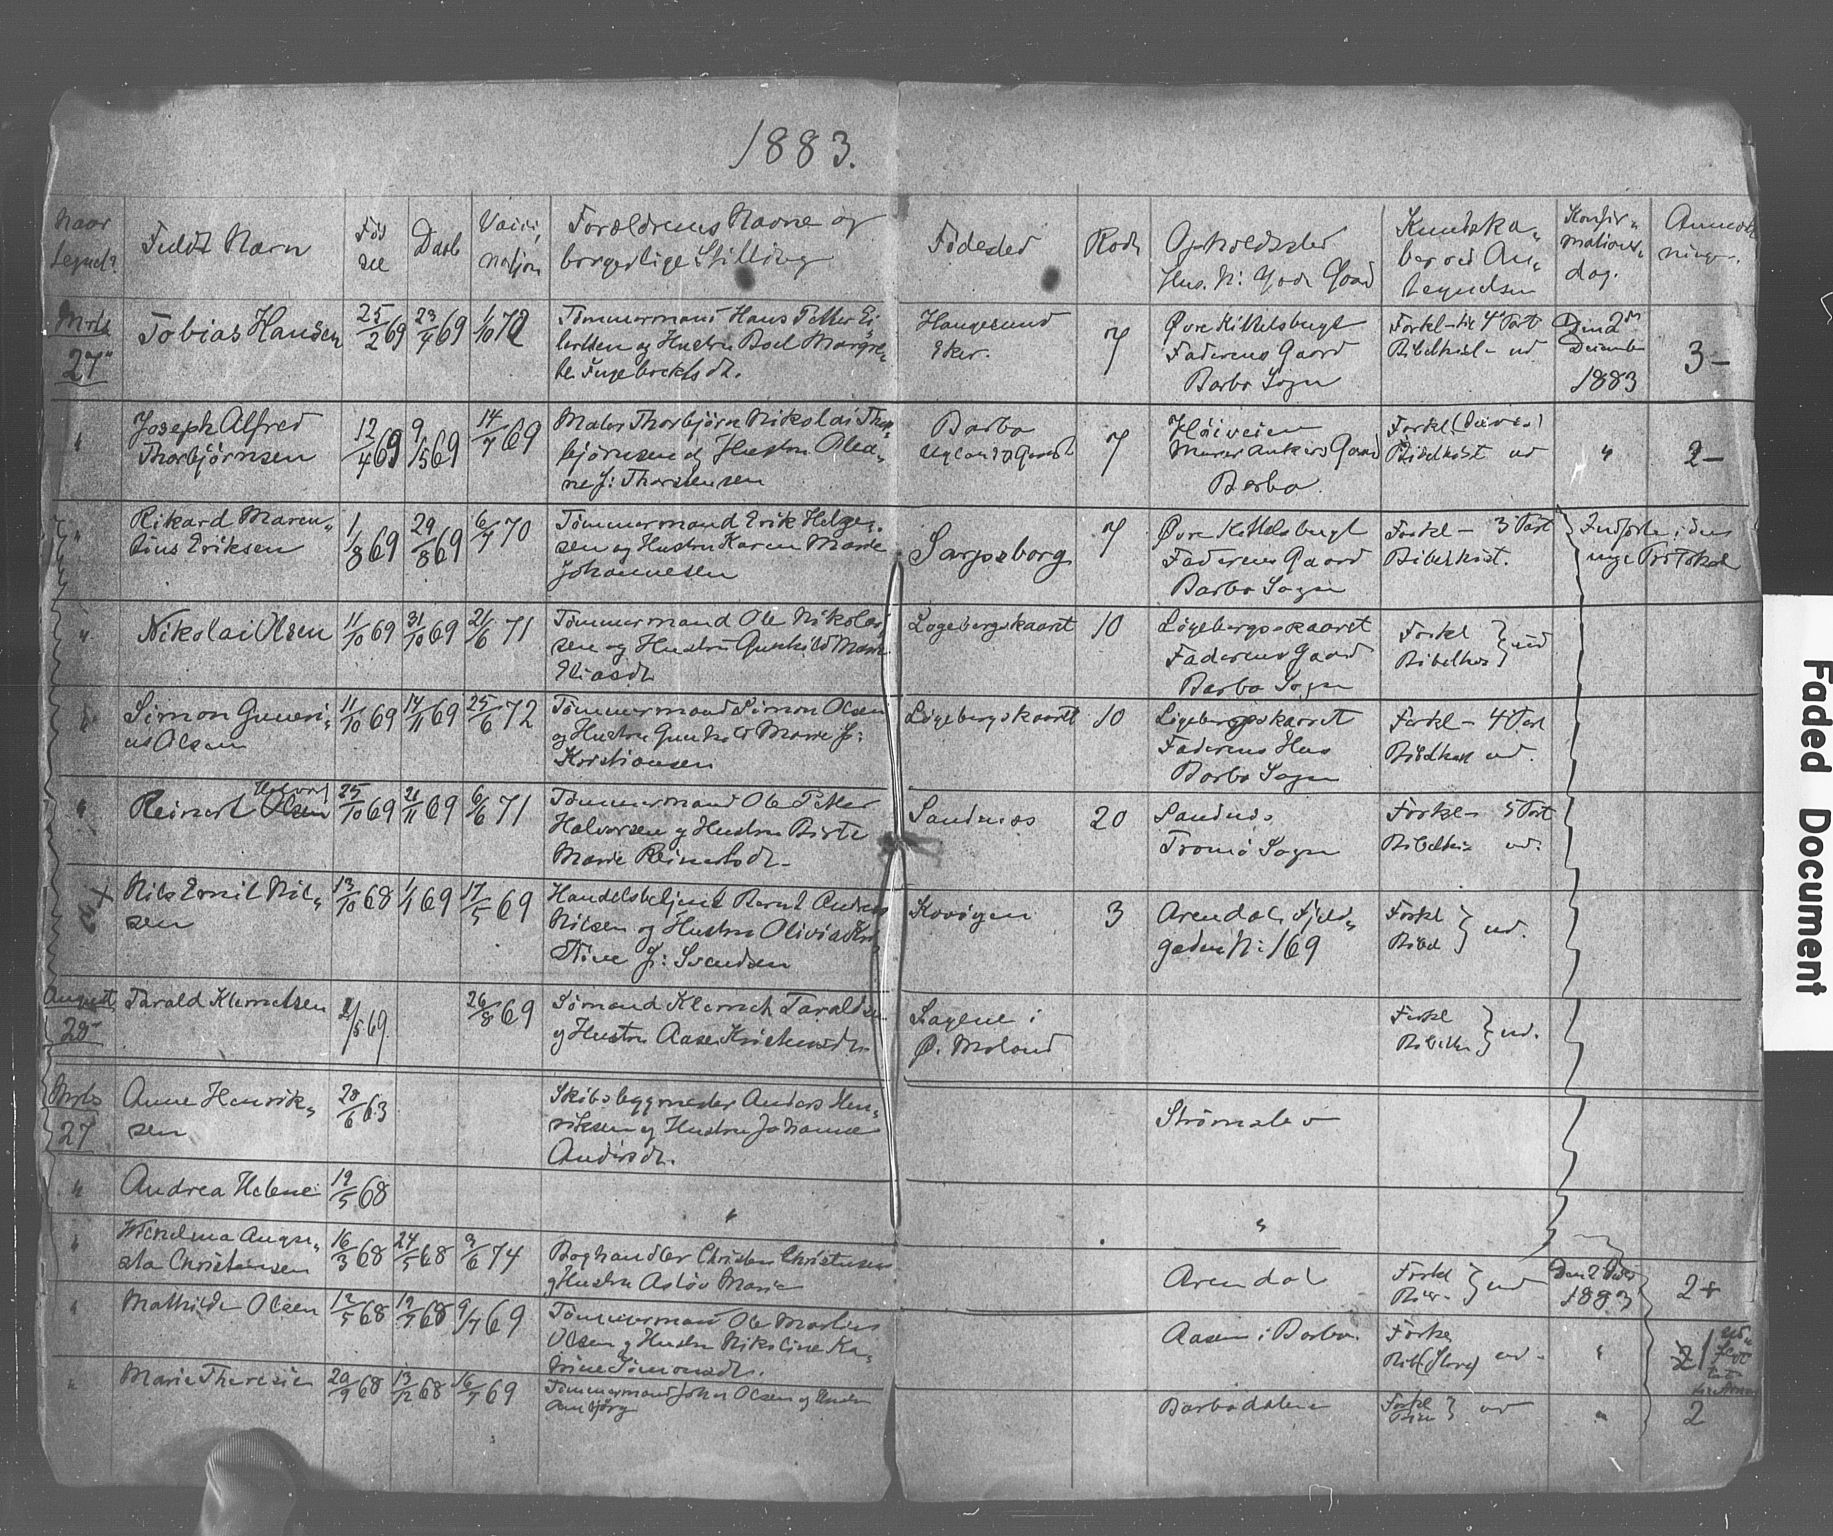 1883.
Naar
Fuldt Navn
Fød
sel
Daab
Vacci-
nation
Forældrenes Navne og
borgerlige Stilling
Fødested
Rode
Opholdssted
Hus. N: Gade Gaard
Kundska-
ber ved An-
tegnelsen
Konfir-
mations-
dag.
Anmærk-
ninger.
27
Tobias Hansen
25/2 69
23/4 69
1/10 72
Tømmermand Hans Petter Ei-
lertsen og Hustru Boel Margre-
the
Haugesund
Eker.
7
Øvre Kittelsbugt
Faderens Gaard
Barbo Sogn
Forkl- til 4 Part
Bibelhist- ud
Den 2den
December
1883
3-
"
Joseph Alfred
Thorbjørnsen
12/4 69
9/5 69
14/7 69
Maler Thorbjørn Nikolai Thor-
bjørnsen og Hustru Olea-
ne f: Thorstensen
Barbo
7
Høiveien
Murer Ankers Gaard
Barbo
Forkl.
Bibelhist ud
"
2-
"
Rikard Maren-
tius Eriksen
1/8 69
29/8 69
6/7 70
Tømmermand Erik Helge-
sen og Hustru Karen Marie
Johannesen
Sarpsborg
7
Øvre Kittelsbugt
Faderens Gaard
Barbo Sogn
Forkl- 3 Part
Bibelhist.
Indførte i den
nye Protokol
"
Nikolai Olsen
11/10 69
31/10 69
21/6 71
Tømmermand Ole Nikolai-
sen og Hustru Gunhild Marie
Eliasdt.
Løgebergskaaret
10
Løgebergskaaret
Faderens Gaard
Barbo Sogn
Forkl
Bibelhis } ud
"
Simon Guneri-
us Olsen
11/10 69
14/11 69
25/6 72
Tømmermand Simon Olsen
og Hustru Gunhild Marie f:
Kristiansen
Løgebergskaaret
10
Løgebergskaaret
Faderens Hus
Barbo Sogn
Forkl- 4 Part
Bibelhist ud.
"
Halvors
Reinert Olsen
25/10 69
21/11 69
6/6 71
Tømmermand Ole Petter
Halvorsen og Hustru Birte
Marie Reinertsdt.
Sandnæs
20
Sandnæs
Tromø Sogn
Forkl- 5 Part
Bibelhis ud.
Nils Emil Nil-
sen
13/10 68
1/1 69
17/5 69
Handelsbetjent Bernt Andreas
Nilsen og Hustru Olivia Kri-
stine f: Svendsen
3
Arendal, Fjeld-
gaden N: 169
Forkl
Bibel } ud.
August
28
Tarald Klemetsen
2/5 69
26/8 69
Sømand Klemet Taraldsen
og Hustru Aase Kristensdt.
Sagene i
Ø. Moland
Forkl
Bibelhis } ud.
27
Anne Henrik-
sen
28/6 63
Skibsbygmester Anders Hen-
riksen og Hustru Johanne
Andersdt.
Strømsbo
"
Andrea Helene
19/5 68
"
"
"
Wilhelmine Augu-
sta Christensen
16/3 68
24/5 68
3/6 74
Boghandler Christen Christensen
og Hustru Asløv Marie
Arendal
Forkl
Bib- } ud
Den 2 Dec
1883
2+
"
Mathilde Olsen
12/5 68
19/7 68
9/7 69
Tømmermand Ole Martin
Olsen og Hustru Nikoline Ka-
trine Simonsdt.
Aasen i Barbo.
Forkl
Bibl (Store) ud-
"
2
"
Marie Theresie
20/9 68
13/12 68
16/7 69
Tømmermand Johan Olsen og Hustru
Barbodalen
Forkl
Bibl } ud
"
2
Faded Document